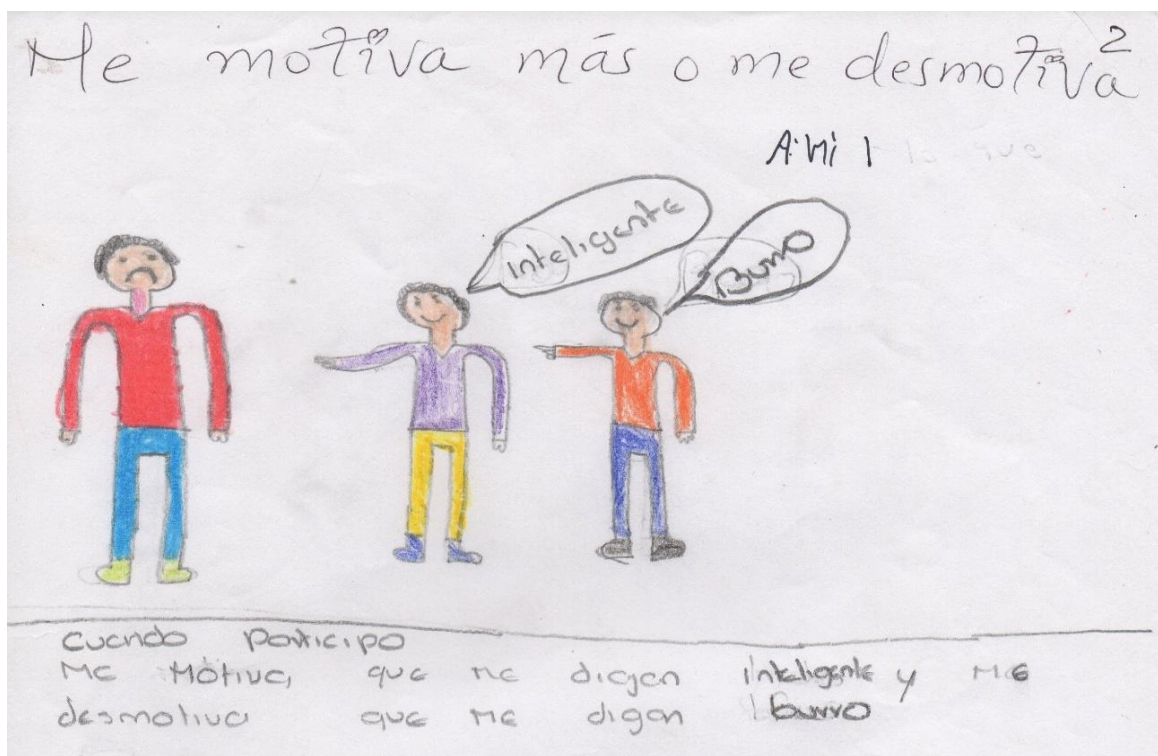 2
Me motiva más o me desmotiva
A: Mi l lo que
inteligente
Burro
cuando participo
Me Motiva que me digan Inteligente y Me
desmotiva que me digan burro